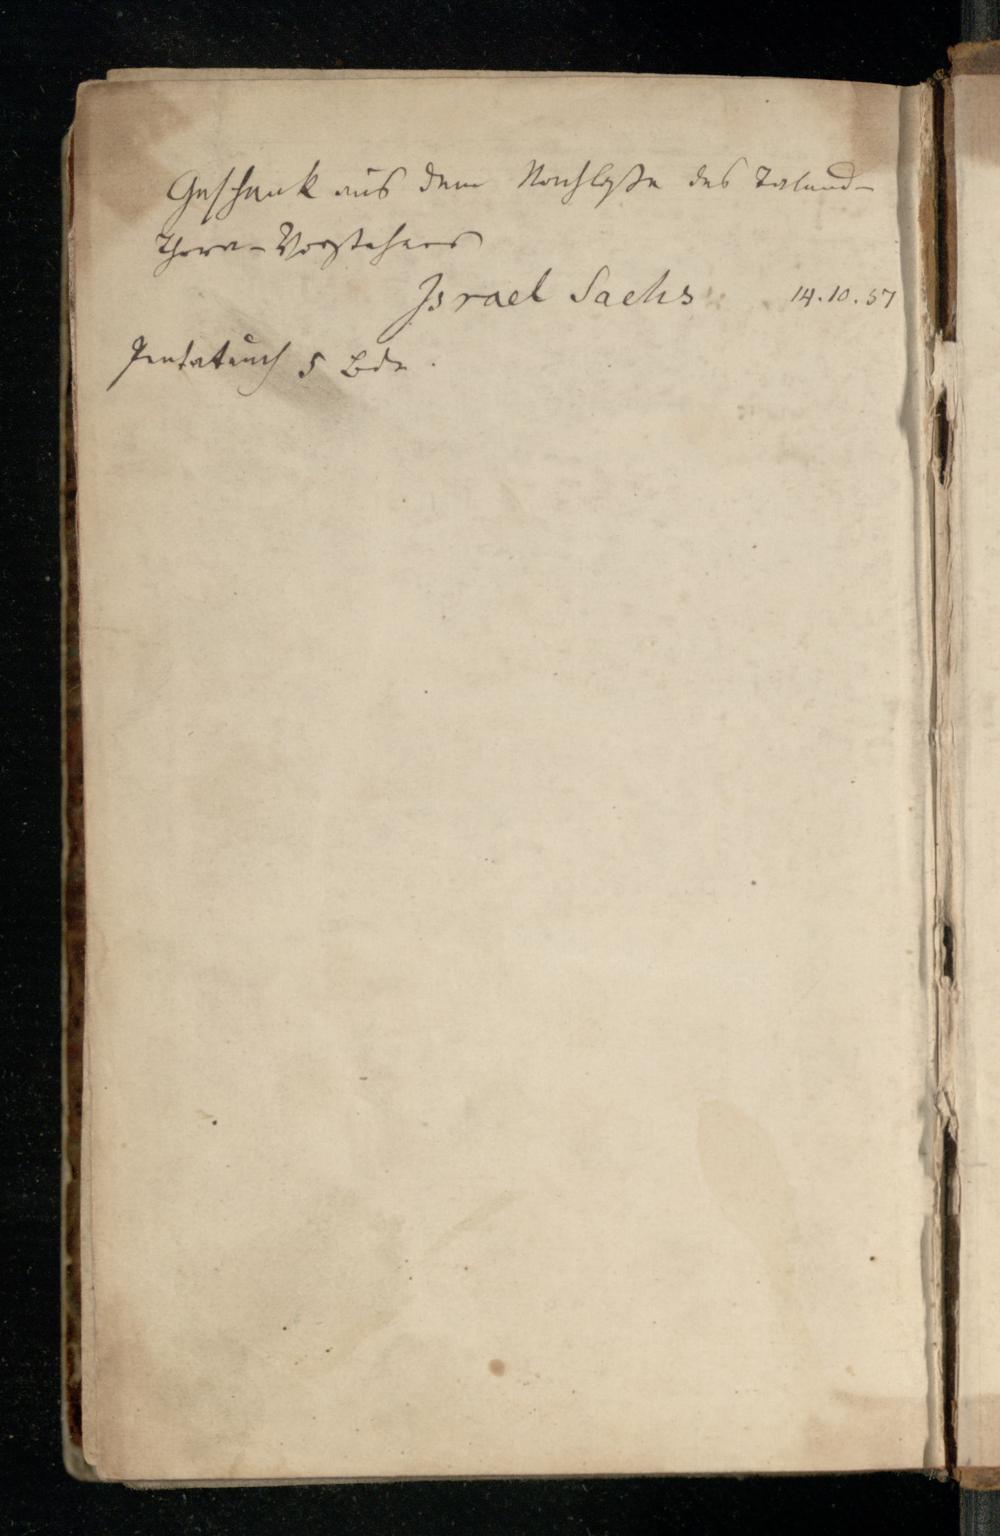 Geschenk aus dem Nachlaße des Talmud-
Thora-Vorstehers
Israel Sachs 14.10.57
Pentateuch 5 Bde.